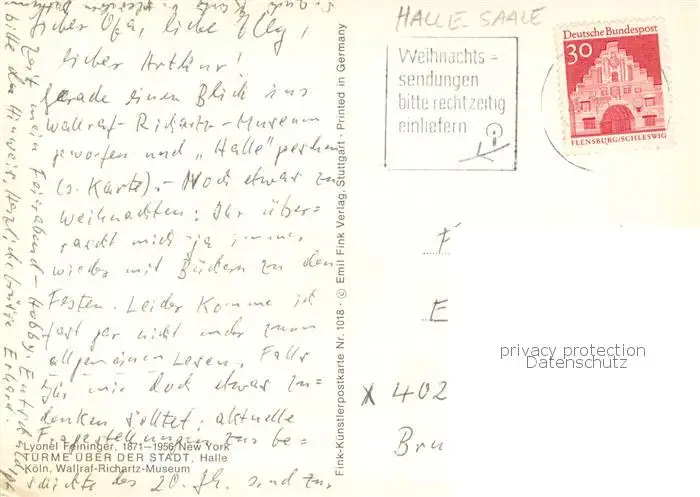 Lieber Opa, liebe Elly,
lieber Arthur!
Gerade einen Blick ins
Wallraf-Richartz-Museum
geworfen und "Halle" gesehen
(s. Karte). - Noch etwas zu
Weihnachten: Ihr über=
rascht mich ja immer
wieder mit Büchern zu den
Festen. Leider komme ich
fast gar nicht mehr zum
allgemeinen Lesen. Falls
Ihr mir doch etwas zu=
denken solltet: aktuelle
Fragestellungen zur
des 20. Jh. sind zur
Zeit mein Feierabend-Hobby.
bitte den Hinweis. Herzliche Grüße Erhard.
Lyonel Feininger, 1871–1956, New York
TÜRME ÜBER DER STADT, Halle
Köln, Wallraf-Richartz-Museum
Fink-Künstlerpostkarte Nr. 1018 · © Emil Fink Verlag, Stuttgart · Printed in Germany
HALLE-SAALE
Weihnachts=
sendungen
bitte rechtzeitig
einliefern
Deutsche Bundespost
30
FLENSBURG/SCHLESWIG
F
E
privacy protection
Datenschutz
x 402
Bru